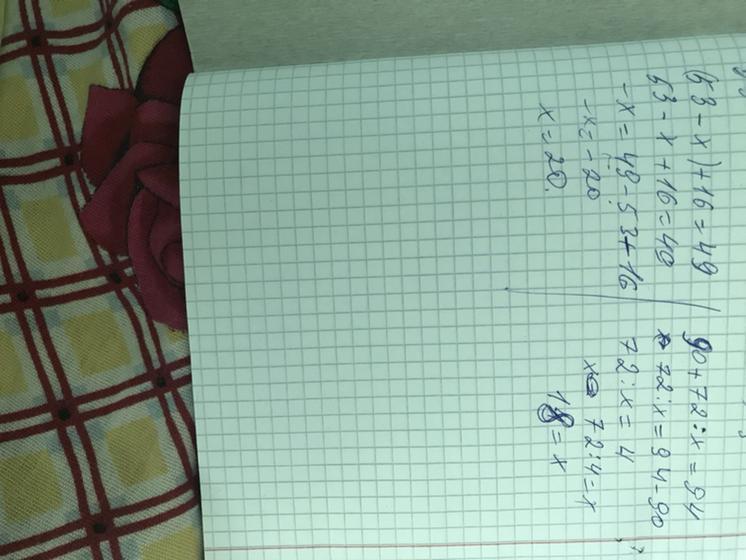 (53 - x) + 16 = 49
53 - x + 16 = 49
-x = 49 - 53 + 16
-x = - 20
x = 20.
90 + 72 : x = 94
72 : x = 94 - 90
72 : x = 4
x 72 : 4 = x
18 = x